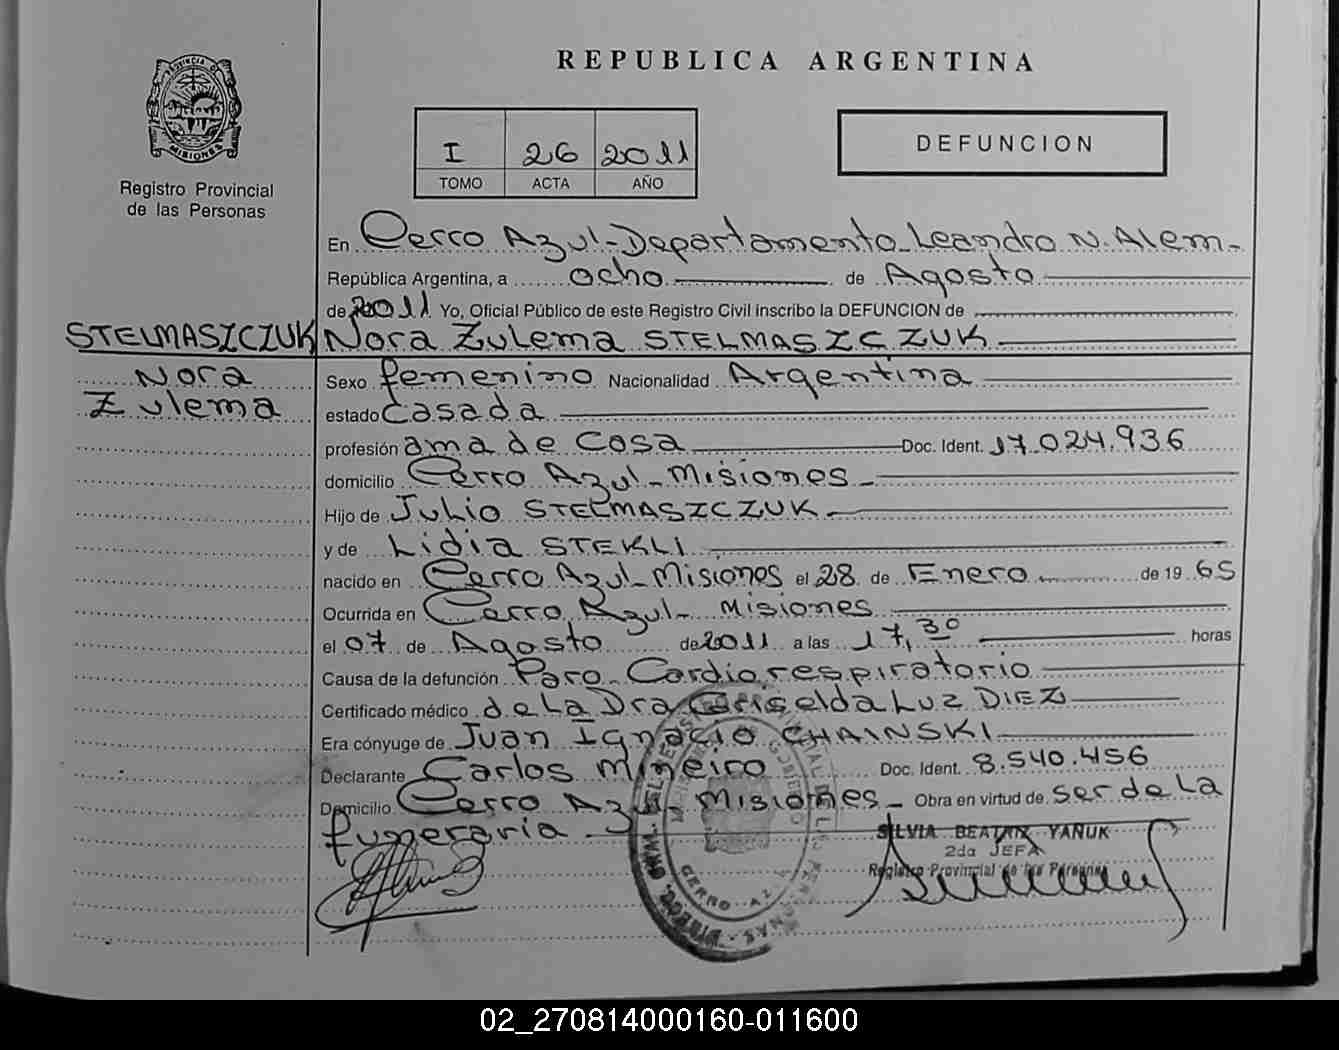 PROVINCIA D
MISIONES
Registro Provincial
de las Personas
REPUBLICA ARGENTINA
I 26 2011
TOMO ACTA AÑO
DEFUNCION
En Cerro Azul-Departamento Leandro N. Alem-
República Argentina, a ocho de Agosto
de 2011 Yo, Oficial Público de este Registro Civil inscribo la DEFUNCION de
STELMASZCZUK Nora Zulema STELMASZCZUK
Nora Sexo femenino Nacionalidad Argentina
Zulema estado casada
profesión ama de casa Doc. Ident. 17.024.936
domicilio Cerro Azul-Misiones-
Hijo de Julio STELMASZCZUK
y de Lidia STEKLI
nacido en Cerro Azul-Misiones el 28 de Enero de 19 65
Ocurrida en Cerro Azul- Misiones
el 07 de Agosto de 2011 a las 17,30 horas
Causa de la defunción Paro Cardiorespiratorio
Certificado médico de la Dra Griselda Luz DIEZ
Era cónyuge de Juan Ignacio CHAINSKI
Declarante Carlos Mineiro Doc. Ident. 8.540.456
Domicilio Cerro Azul-Misiones- Obra en virtud de ser de la
funeraria
SILVIA BEATRIX YAÑUK
2da JEFA
Registro Provincial de las Personas
CERRO AZUL
02_270814000160-011600